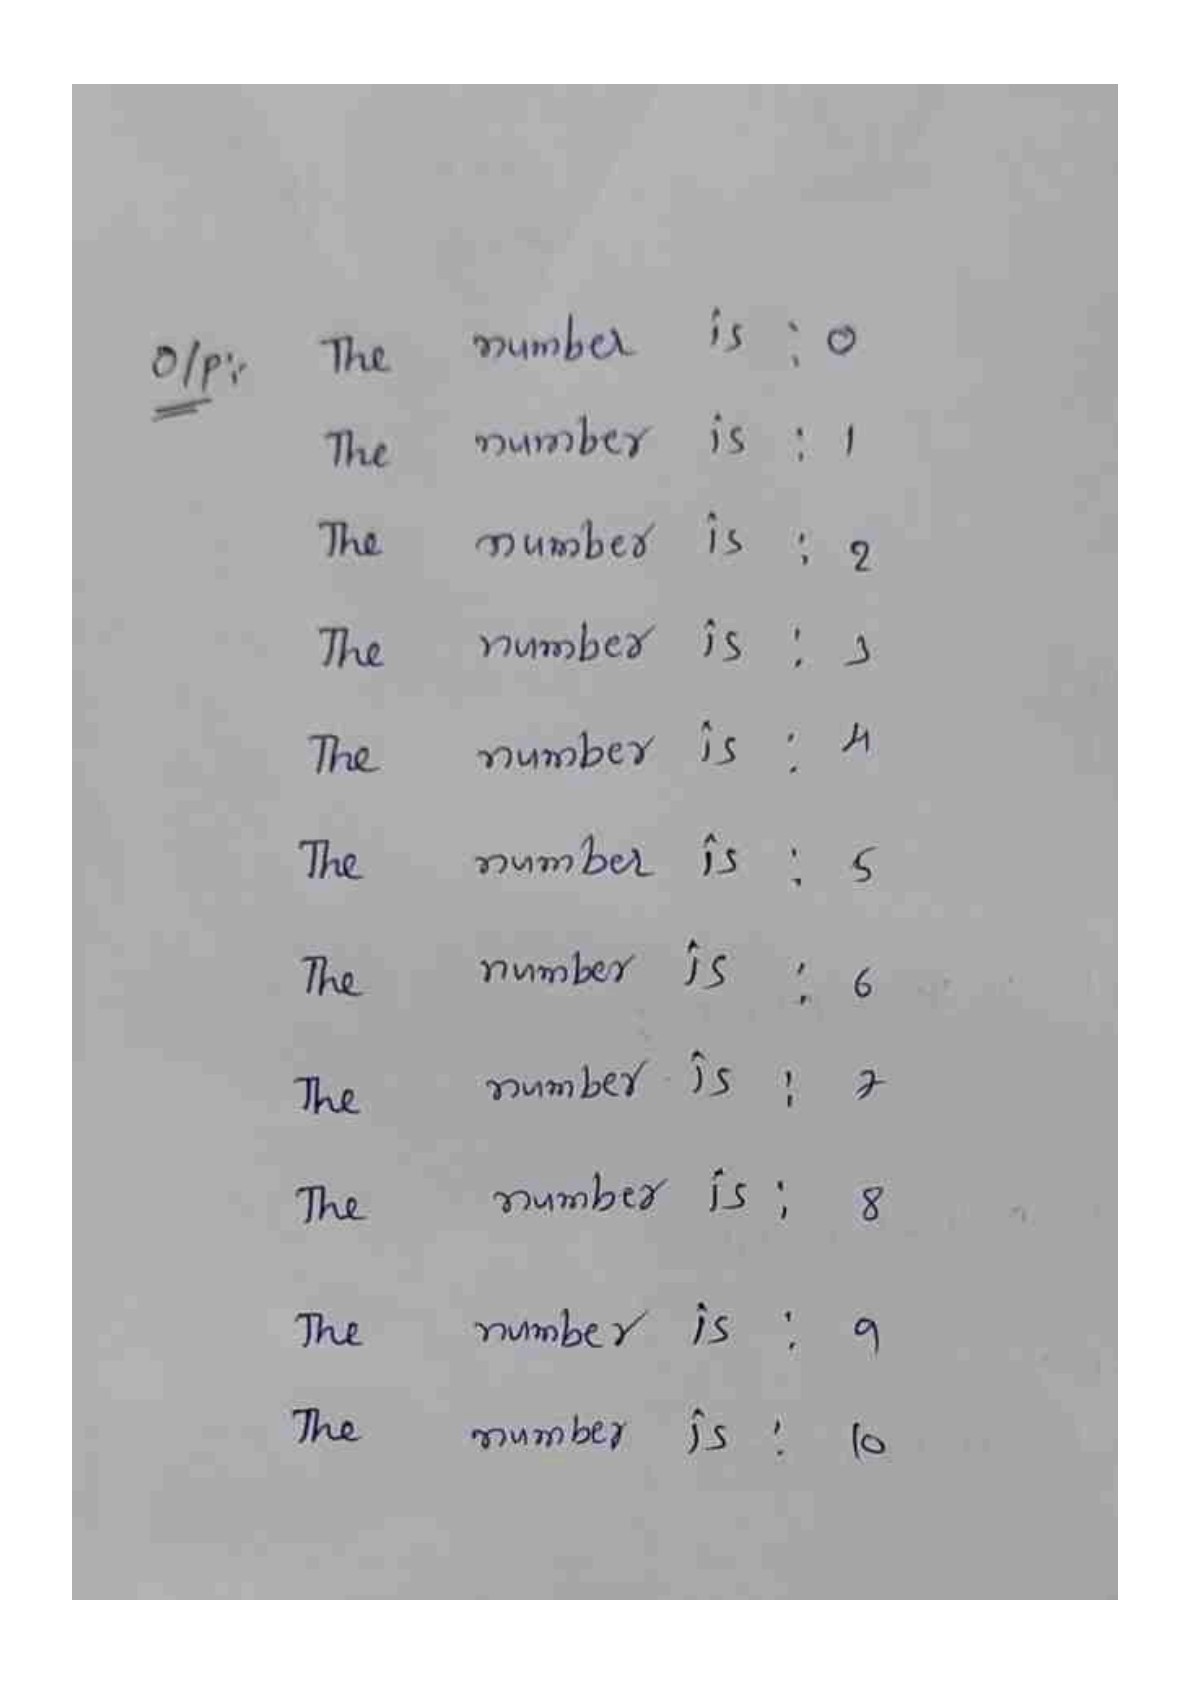 O/P:- The number is : 0
The number is : 1
The number is : 2
The number is : 3
The number is : 4
The number is : 5
The number is : 6
The number is : 7
The number is : 8
The number is : 9
The number is : 10